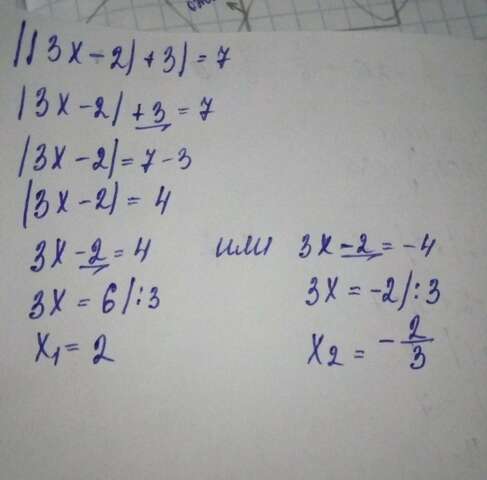 ||3x-2|+3|=7
|3x-2|+3=7
|3x-2|=7-3
|3x-2|=4
3x-2=4 или 3x-2=-4
3x=6|:3 3x=-2|:3
x₁=2 x₂=-2/3